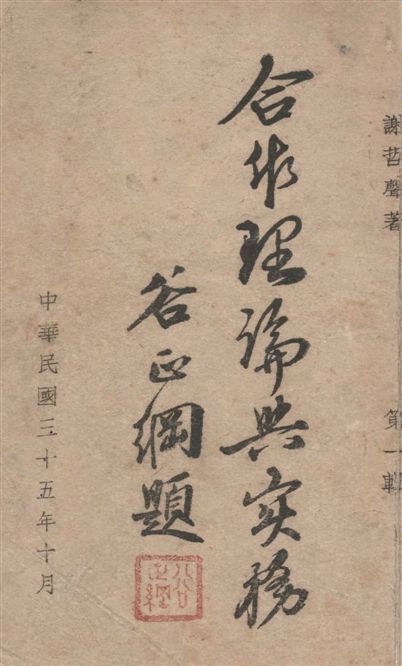 謝哲聲著　第一輯
合作理論與实務
谷正綱題
中華民國三十五年十月